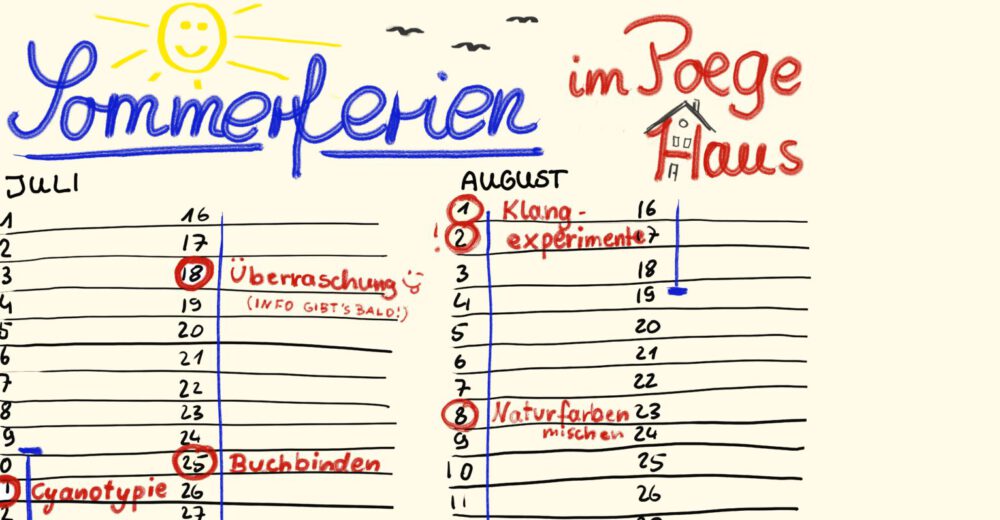 Sommerferien
im Poege
Haus
JULI
1 16
2 17
3 18 Überraschung
4 19 (INFO GIBT'S BALD!)
5 20
6 21
7 22
8 23
9 24
0 25 Buchbinden
1 Cyanotypie 26
2 27
AUGUST
1 Klang- 16
! 2 experimente 17
3 18
4 19
5 20
6 21
7 22
8 Naturfarben 23
9 mischen 24
10 25
11 26